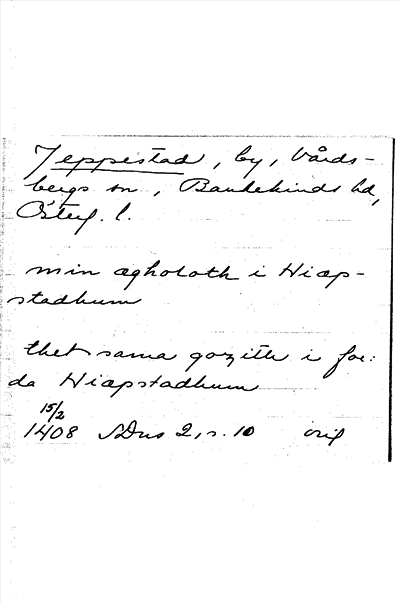 Jeppestad, by, Vårds-
bergs sn, Bankekinds hd,
Österg. l.
min agholoth i Hiæp-
stadhum
thet sama gozith i for:
da Hiæpstadhum
15/2
1408 SDns 2, s. 10 orig